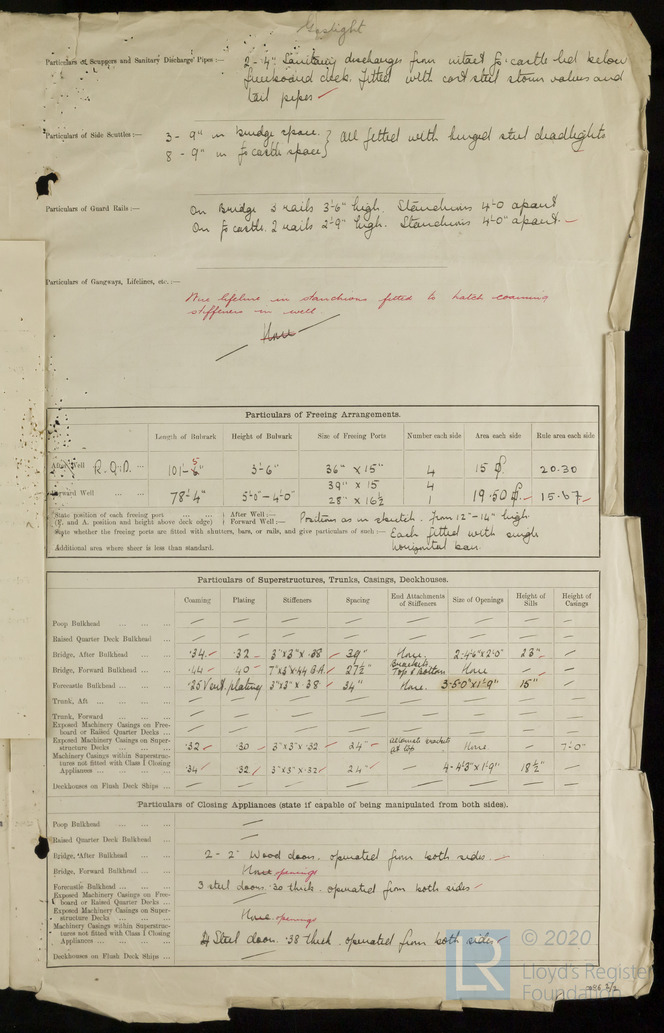 Gaslight
Particulars of Scuppers and Sanitary Discharge Pipes :— 2 - 4" Sanitary discharges from intact fo'castle led below
freeboard deck. Fitted with cast steel storm valves and
tail pipes
Particulars of Side Scuttles :— 3 - 9" in bridge space. } all fitted with hinged steel deadlights
8 - 9" in fo'castle space }
Particulars of Guard Rails :— On Bridge 3 rails 3'-6" high. Stanchions 4'-0 apart
On fo'castle. 2 rails 2'-9" high. Stanchions 4'-0" apart.
Particulars of Gangways, Lifelines, etc. :—
Wire lifeline in stanchions fitted to hatch coaming
stiffeners in well.
None
Particulars of Freeing Arrangements.
Length of Bulwark Height of Bulwark Size of Freeing Ports Number each side Area each side Rule area each side
After Well R.Q.D. ... 101'- 5" 3'-6" 36" x 15" 4 15 20.30
39" x 15 4
Forward Well ... ... 78'-4" 5'-0" - 4'-0" 28" x 16½ 1 19.50 15.67
State position of each freeing port ... ... ... } After Well :— Positions as in sketch. From 12"-14" high
(F. and A. position and height above deck edge) } Forward Well :—
State whether the freeing ports are fitted with shutters, bars, or rails, and give particulars of such :— Each fitted with single
Additional area where sheer is less than standard. horizontal bar.
Particulars of Superstructures, Trunks, Casings, Deckhouses.
Coaming Plating Stiffeners Spacing End Attachments of Stiffeners Size of Openings Height of Sills Height of Casings
Poop Bulkhead ... ... ... — — — — — — — —
Raised Quarter Deck Bulkhead ... — — — — — — — —
Bridge, After Bulkhead ... ... .34 .32 3"x3"x.38 39" None. 2-4'6"x2'0" 23" —
Bridge, Forward Bulkhead ... ... .44 .40 7"x3"x.44 B.A. 27½" Brackets Top & Bottom None — —
Forecastle Bulkhead ... ... ... .25 Vert. plating 3"x3"x.38 34" None. 3-5'0"x1'9" 15" —
Trunk, Aft ... ... ... — — — — — — — —
Trunk, Forward ... ... ... — — — — — — — —
Exposed Machinery Casings on Free-
board or Raised Quarter Decks ... — — — — — — — —
Exposed Machinery Casings on Super-
structure Decks ... ... ... .32 .30 3"x3"x.32 24" Alternate brackets at top None — 7'-0"
Machinery Casings within Superstruc-
tures not fitted with Class I Closing
Appliances ... ... ... .34 .32 3"x3"x.32 24" — 4-4'3"x1'9" 18½" —
Deckhouses on Flush Deck Ships ... — — — — — — — —
Particulars of Closing Appliances (state if capable of being manipulated from both sides).
Poop Bulkhead ... ... ... —
Raised Quarter Deck Bulkhead ... —
Bridge, After Bulkhead ... ... 2 - 2" Wood doors. operated from both sides.
Bridge, Forward Bulkhead ... ... None openings
Forecastle Bulkhead ... ... ... 3 steel doors .30 thick. operated from both sides
Exposed Machinery Casings on Free-
board or Raised Quarter Decks ... —
Exposed Machinery Casings on Super-
structure Decks ... ... ... None openings
Machinery Casings within Superstruc-
tures not fitted with Class I Closing
Appliances ... ... ... 4 Steel doors .38 thick. operated from both sides
Deckhouses on Flush Deck Ships ... —
LR © 2020
Lloyd's Register
Foundation